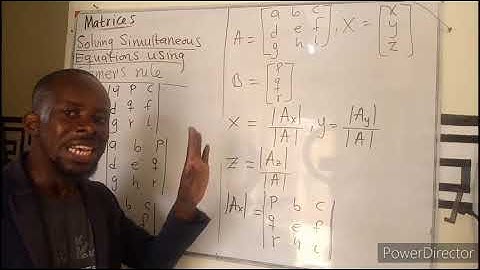 Matrices
Solving Simultaneous
Equations using
mer's rule
g p c
d q f
g r i
a b p
d e q
g h r
b c
f
A = [a b c
d e f
g h i], X = [x
y
z]
B = [p
q
r]
X = |Ax| / |A| , y = |Ay| / |A|
Z = |Az| / |A|
|Ax| = |p b c
q e f
r h i|
PowerDirector